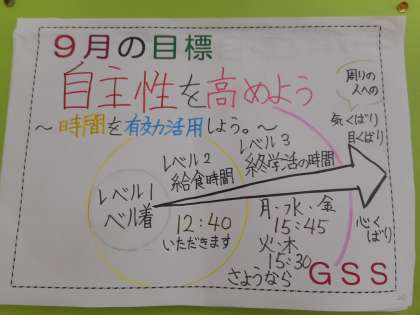 9月の目標
自主性を高めよう
～時間を有効活用しよう。～
周りの
人への
気くばり
目くばり
心くばり
レベル1
ベル着
レベル2
給食時間
12:40
いただきます
レベル3
終学活の時間
月・水・金
15:45
火・木
15:30
さようなら
GSS